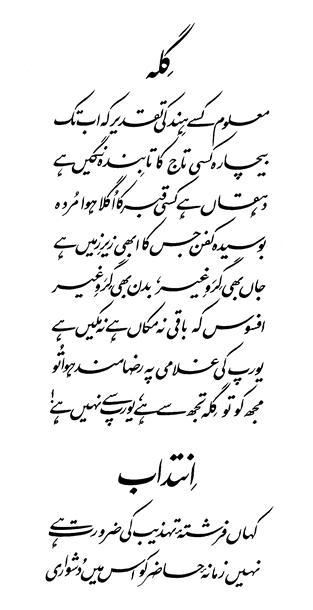 گِلہ
معلوم کسے ہند کی تقدیر کہ اب تک
بیچارہ کسی تاج کا تابندہ نگیں ہے
دہقاں ہے کسی قبر کا اُگلا ہوا مُردہ
بوسیدہ کفن جس کا ابھی زیرِ زمیں ہے
جاں بھی گِرَوِ غیر، بدن بھی گِرَوِ غیر
افسوس کہ باقی نہ مکاں ہے نہ مکیں ہے
یورپ کی غلامی پہ رضامند ہوا تُو
مجھ کو تو گِلہ تجھ سے ہے، یورپ سے نہیں ہے!
اِنتداب
کہاں فرشتۂ تہذیب کی ضرورت ہے
نہیں زمانۂ حاضر کو اس میں دُشواری